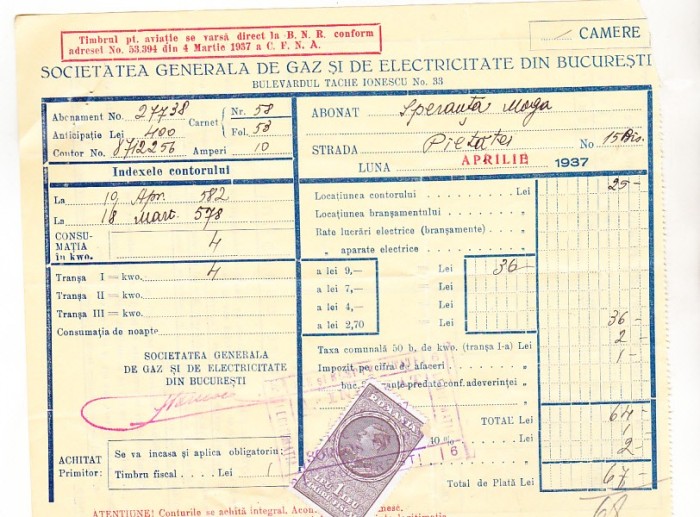 Timbrul pt. aviație se varsă direct la B. N. R. conform
adresei No. 53.394 din 4 Martie 1937 a C. F. N. A.
CAMERE
SOCIETATEA GENERALA DE GAZ ȘI DE ELECTRICITATE DIN BUCUREȘTI
BULEVARDUL TACHE IONESCU No. 33
Abonament No. 27738 Carnet Nr. 58
Anticipație Lei 400 Fol. 53
Contor No. 8712256 Amperi 10
ABONAT Speranța Moga
STRADA Pietatei No 15 Bis.
LUNA APRILIE 1937
Indexele contorului
La 19 Apr. 582
La 18 Mart. 578
CONSU-
MAȚIA
în kwo.
4
Tranșa I = kwo. 4
Tranșa II = kwo.
Tranșa III = kwo.
Consumația de noapte
Locațiunea contorului Lei 25-
Locațiunea branșamentului „
Rate lucrări electrice (branșamente) „
„ aparate electrice „
a lei 9,— Lei 36-
a lei 7,— Lei
a lei 4,— Lei
a lei 2,70 Lei 36-
Taxa comunală 50 b. de kwo. (tranșa 1-a) Lei 2-
Impozit pe cifra de afaceri „ 1-
predate conf. adeverinței
SOCIETATEA GENERALA
DE GAZ ȘI DE ELECTRICITATE
DIN BUCUREȘTI
ROMANIA
TOTAL Lei 64
10% Lei 1
Lei 2
Total de Plată Lei 67-
68
ACHITAT
Primitor:
Se va incasa și aplica obligatoriu:
Timbru fiscal Lei 1
ATENȚIUNE! Conturile se achită integral.